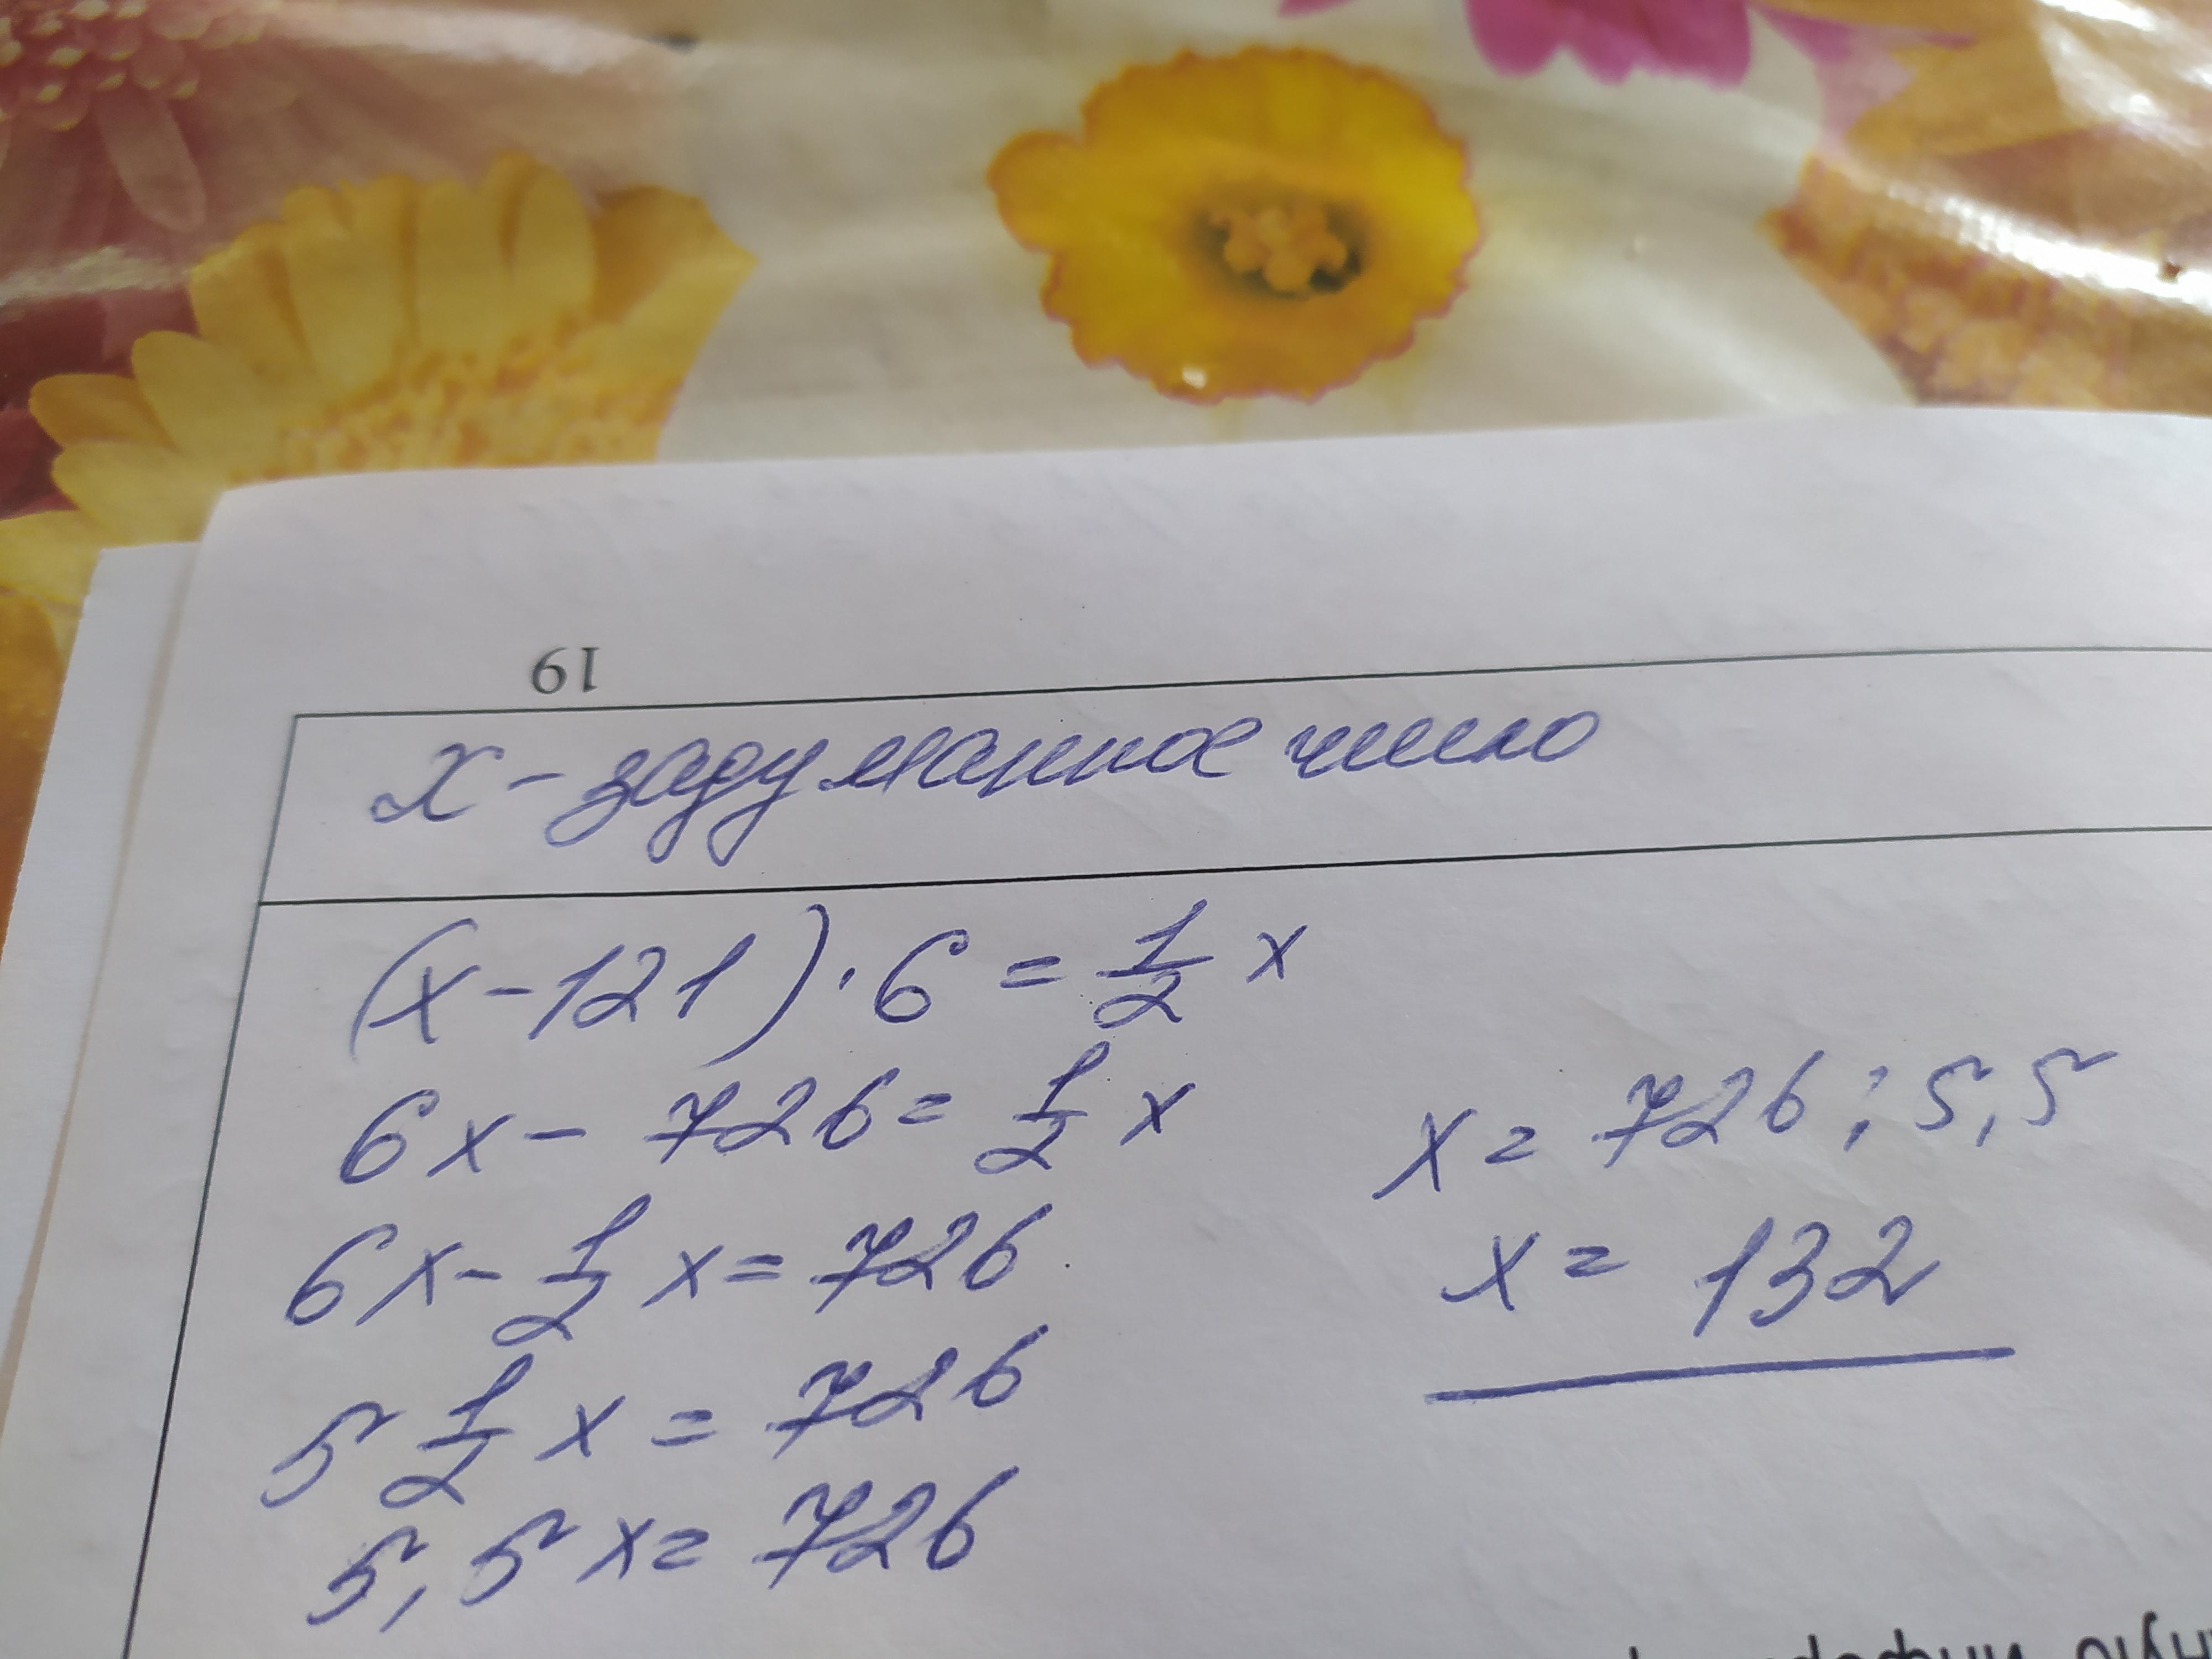 19
x - задуманное число
(x - 121) · 6 = 1/2 x
6x - 726 = 1/2 x
6x - 1/2 x = 726
5 1/2 x = 726
5,5 x = 726
x = 726 : 5,5
x = 132